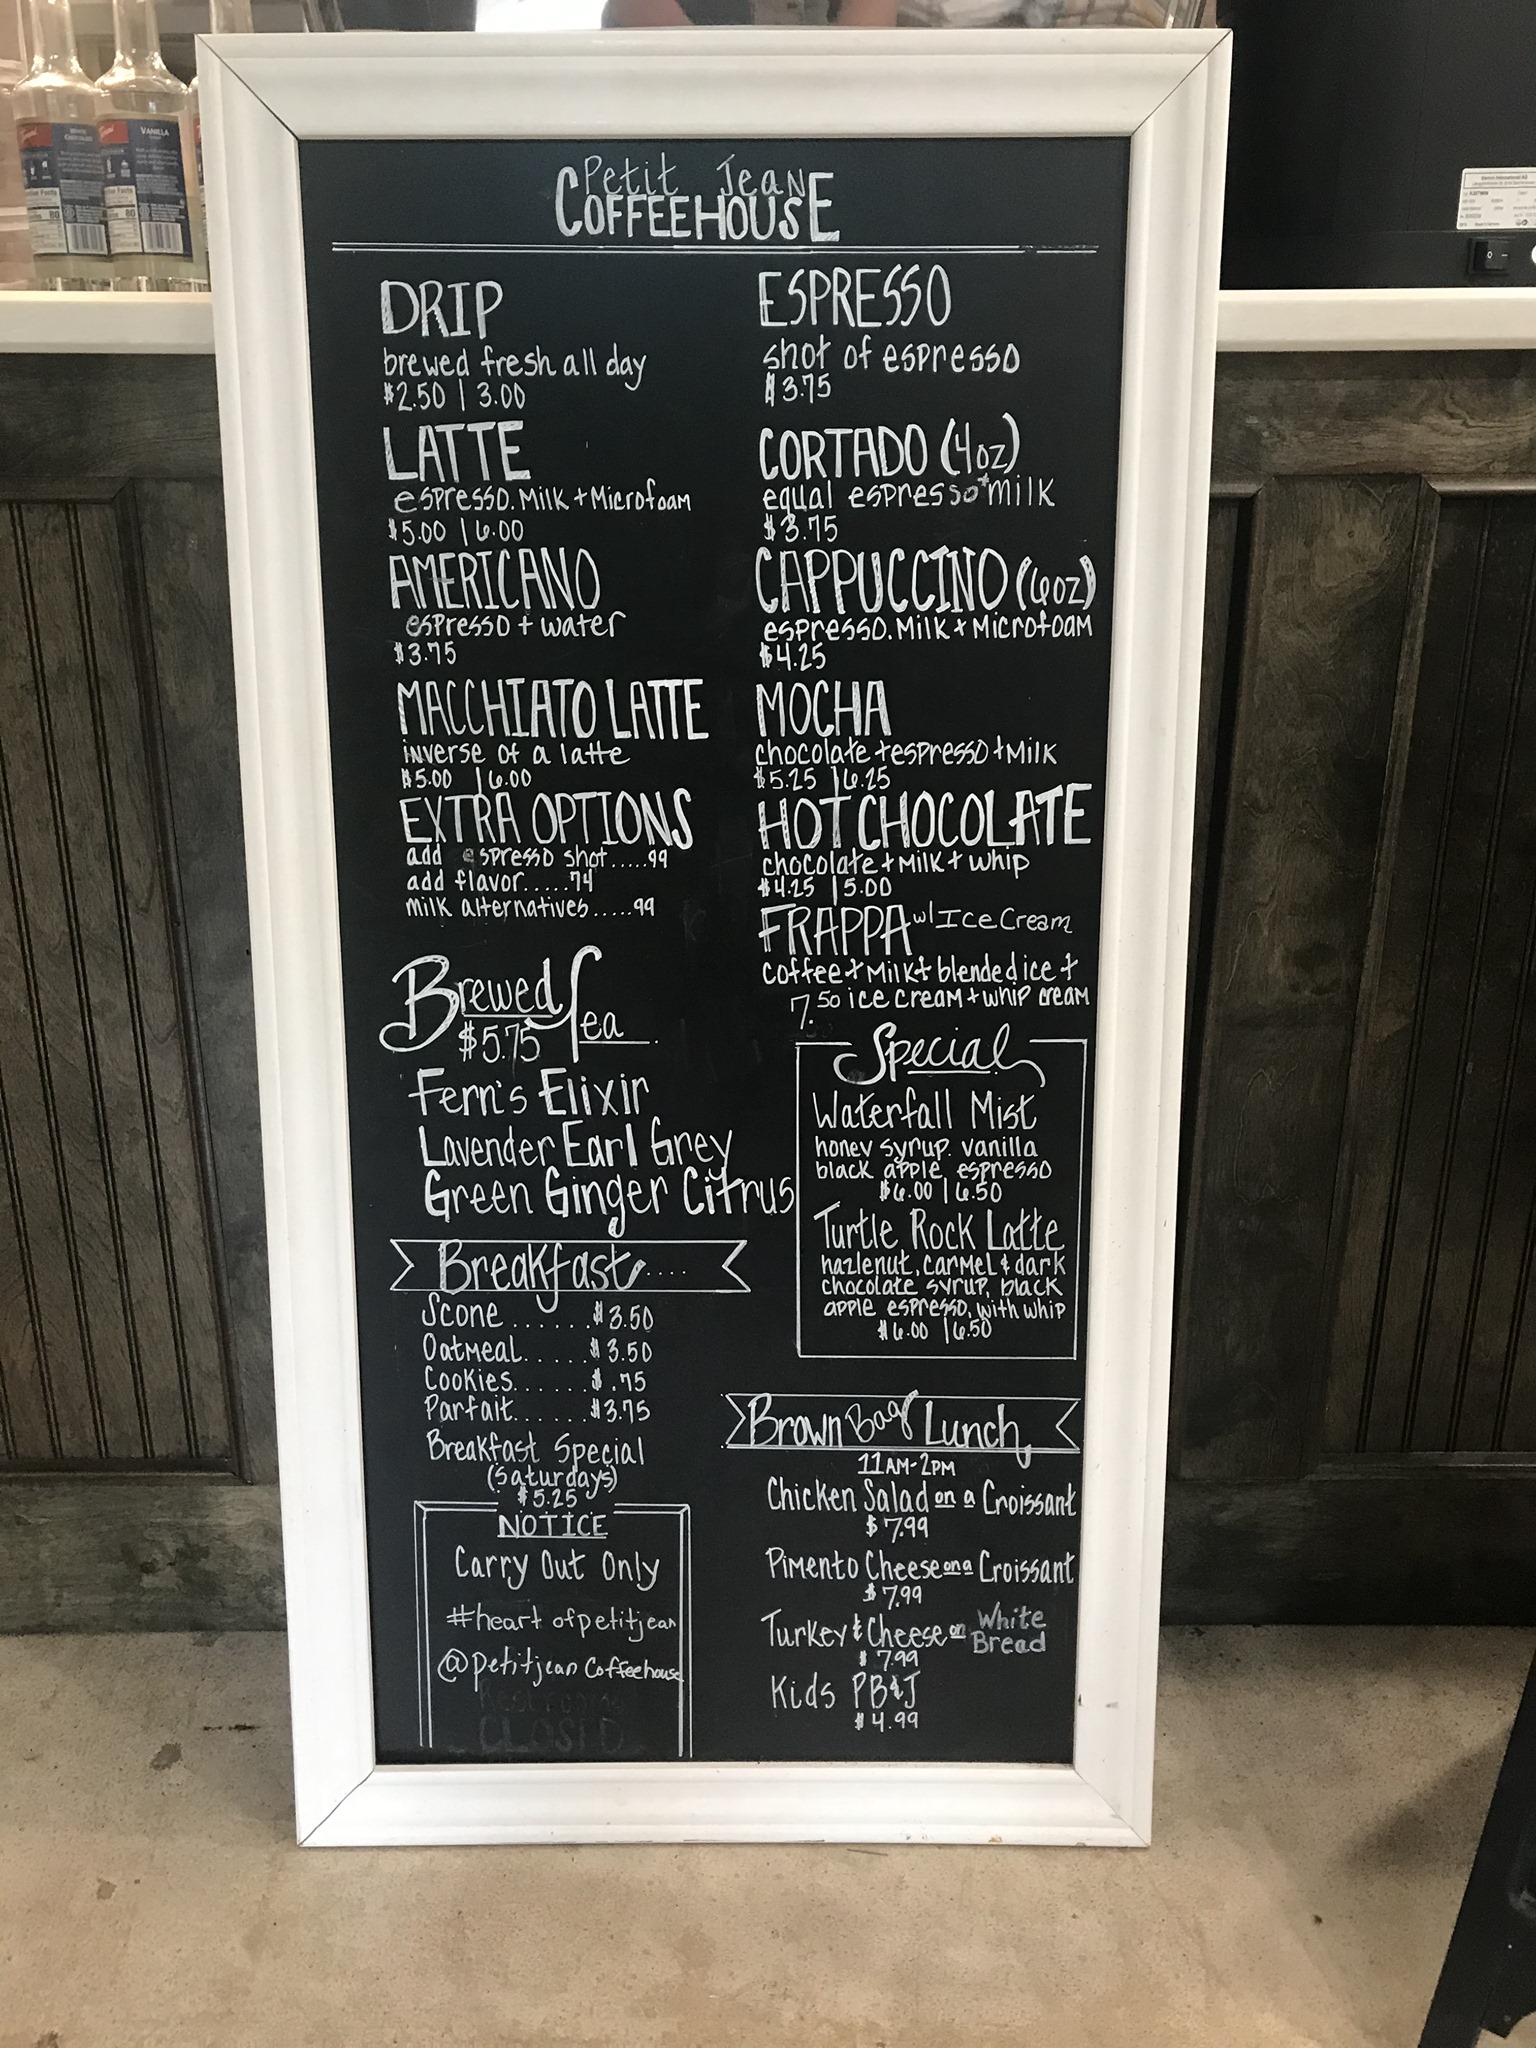 Petit Jean
COFFEEHOUSE
DRIP
brewed fresh all day
$2.50 | 3.00
LATTE
espresso. Milk + Microfoam
$5.00 | 6.00
AMERICANO
espresso + water
$3.75
MACCHIATO LATTE
inverse of a latte
$5.00 | 6.00
EXTRA OPTIONS
add espresso shot.....99
add flavor.....74
milk alternatives.....99
Brewed Tea
$5.75
Fern's Elixir
Lavender Earl Grey
Green Ginger Citrus
Breakfast....
Scone......$3.50
Oatmeal.....$3.50
Cookies......$.75
Parfait......$3.75
Breakfast Special
(Saturdays)
$5.25
NOTICE
Carry Out Only
#heartofpetitjean
@petitjeanCoffeehouse
CLOSED
ESPRESSO
shot of espresso
$3.75
CORTADO (4oz)
equal espresso + milk
$3.75
CAPPUCCINO (6oz)
espresso. Milk + Microfoam
$4.25
MOCHA
chocolate + espresso + Milk
$5.25 | 6.25
HOT CHOCOLATE
chocolate + Milk + whip
$4.25 | 5.00
FRAPPA w/ Ice Cream
coffee + Milk + blended ice +
7.50 ice cream + whip cream
Special
Waterfall Mist
honey syrup. vanilla
black apple espresso
$6.00 | 6.50
Turtle Rock Latte
hazlenut, carmel & dark
chocolate syrup, black
apple espresso, with whip
$6.00 | 6.50
Brown Bag Lunch
11AM-2PM
Chicken Salad on a Croissant
$7.99
Pimento Cheese on a Croissant
$7.99
Turkey & Cheese on White Bread
$7.99
Kids PB&J
$4.99
VANILLA
80
80